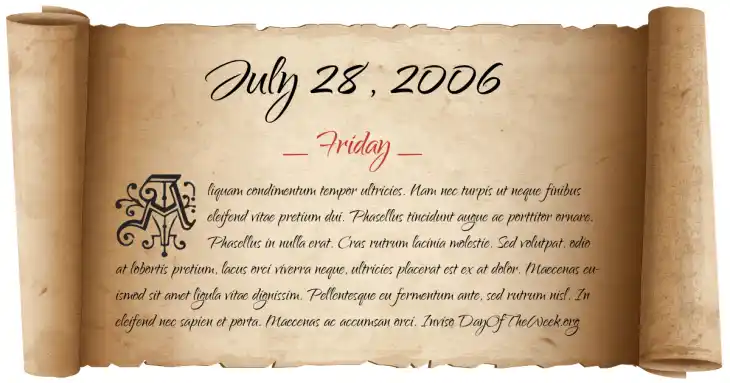 July 28, 2006
__ Friday __
Aliquam condimentum tempor ultricies. Nam nec turpis ut neque finibus
eleifend vitae pretium dui. Phasellus tincidunt augue ac porttitor ornare.
Phasellus in nulla erat. Cras rutrum lacinia molestie. Sed volutpat, odio
at lobortis pretium, lacus orci viverra neque, ultricies placerat est ex at dolor. Maecenas eu-
ismod sit amet ligula vitae dignissim. Pellentesque eu fermentum ante, sed rutrum nisl. In
eleifend nec sapien et porta. Maecenas ac accumsan orci. Inviso DayOfTheWeek.org